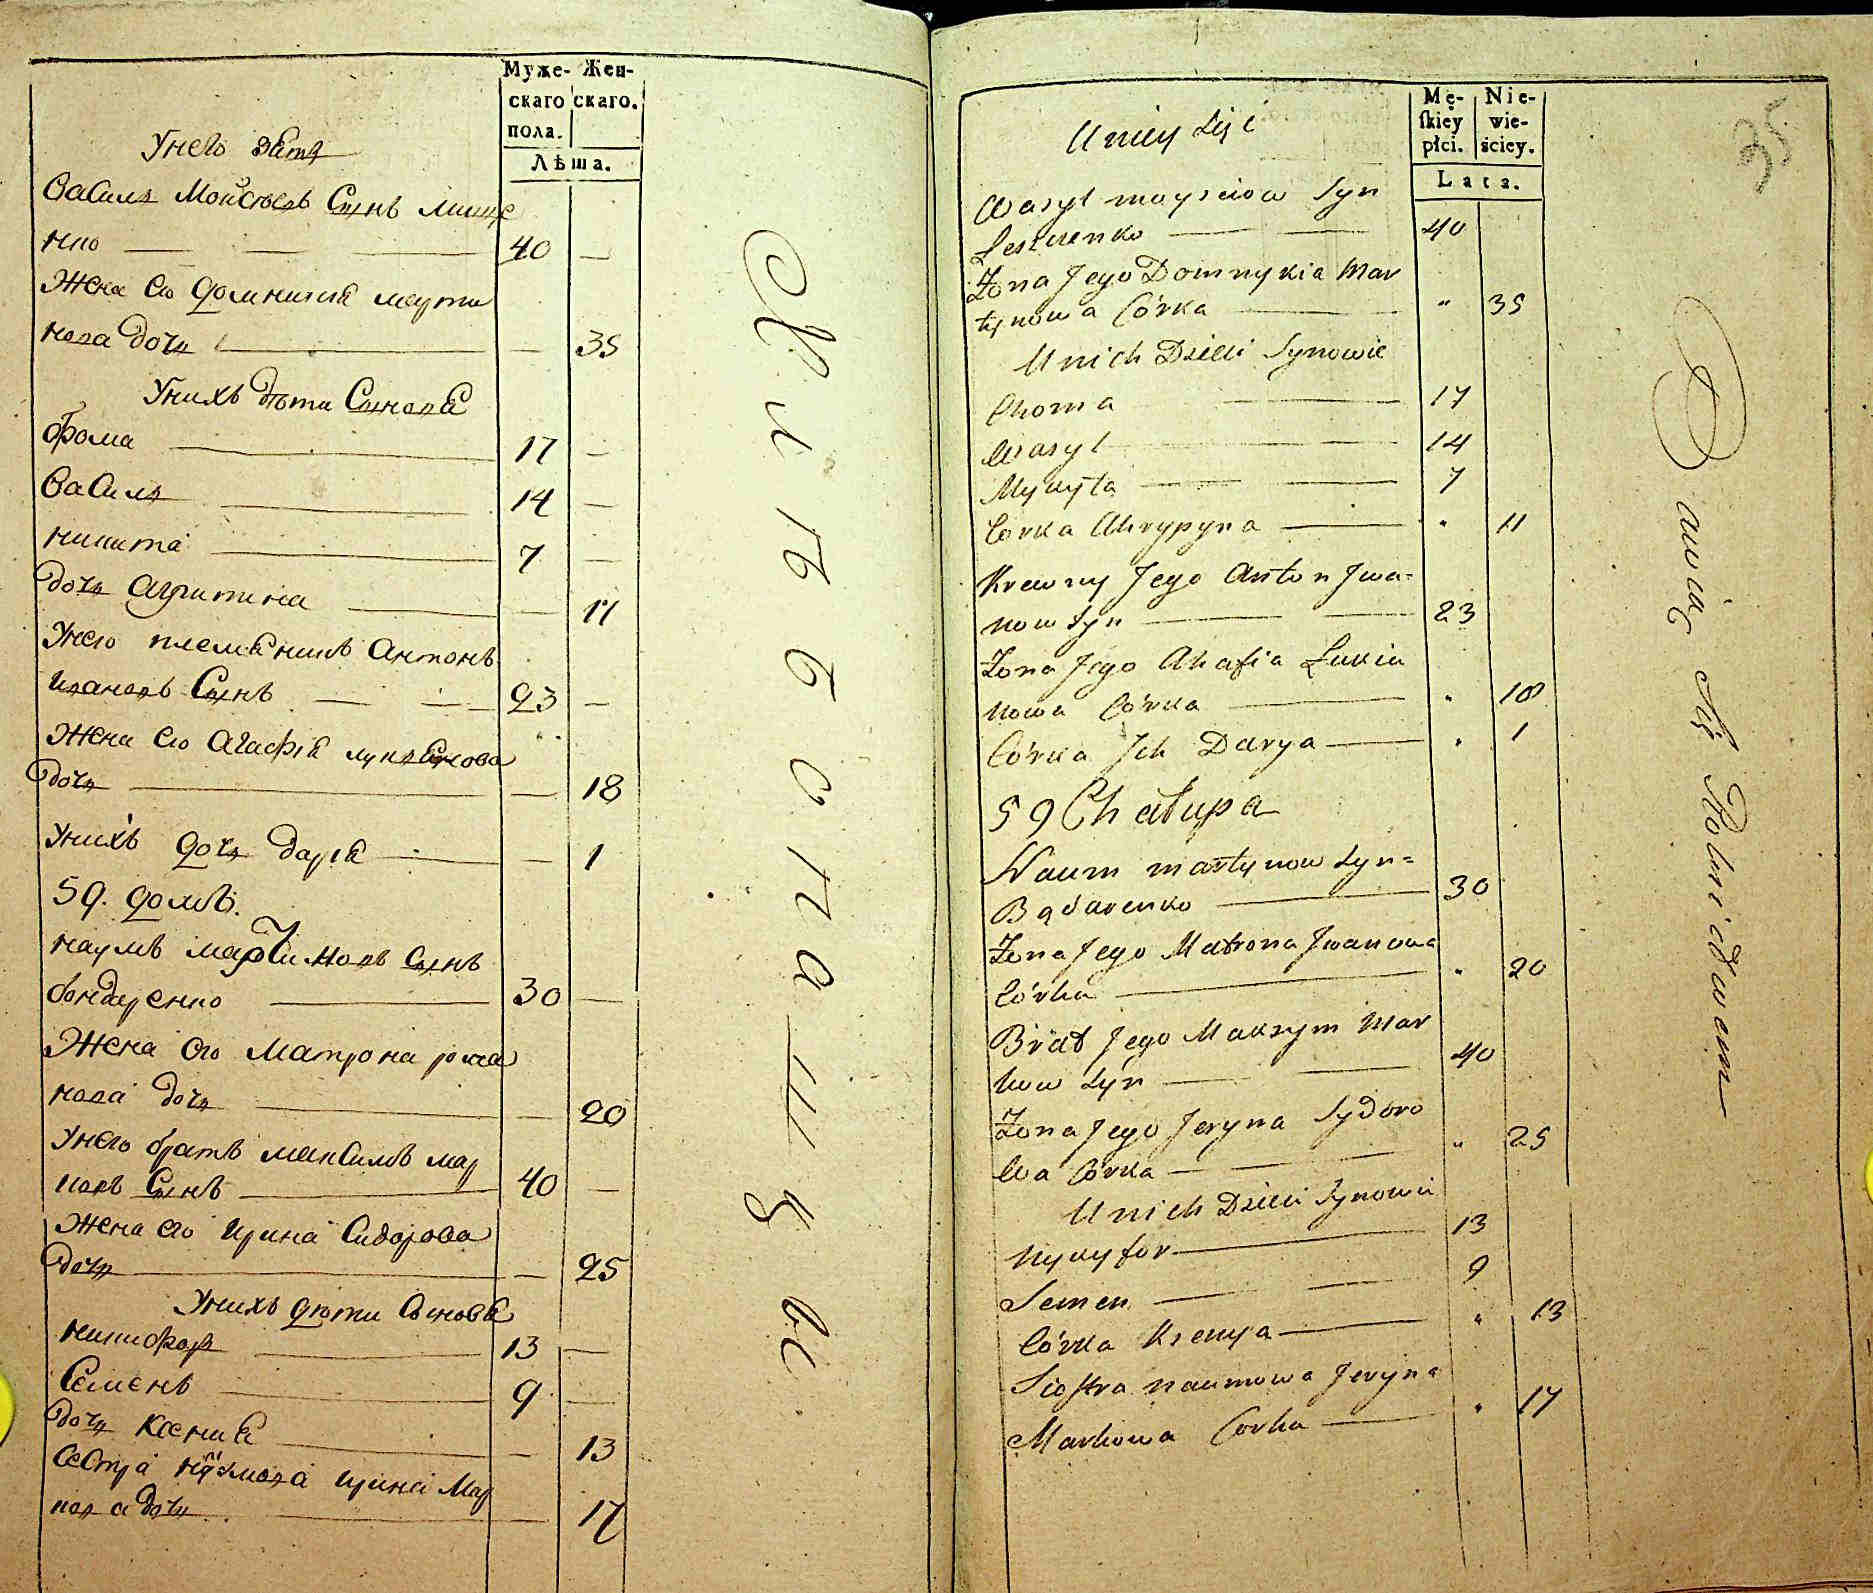 Муже- Жен-
скаго скаго.
пола.
Лѣта.
Унего зять
Василь Мойсѣевъ Сынъ Лище
нко — 40 —
Жена его Доминикія марти
нова дочь — 35
Унихъ дѣти Сыновѧ
Фома — 17 —
Василь — 14 —
Никита — 7 —
дочь Агрипина — 11
Унего племѣникъ Антонъ
Ивановъ Сынъ — 23 —
Жена его Агафія лукѧнова
дочь — 18
Унихъ дочь Дарія — 1
59. домъ.
Наумъ мартиновъ Сынъ
бондаренко — 30 —
Жена его Матрона рома
нова дочь — 20
Унего братъ максимъ мар
ковъ Сынъ — 40 —
Жена его Ирина Сидорова
дочь — 25
Унихъ дѣти Сыновѧ
Никифор — 13 —
Семенъ — 9 —
дочь Ксенія — 13
Сестра наумова ирина Мар
кова дочь — 17
Mę- Nie-
skiey wie-
płci. ściey.
Lata.
35
U niey Zięć
Wasyl moysiiow Syn
Leszczenko — 40
Żona Jego Domnykia Mar
tynowa Córka — " 35
U nich Dzieci Synowie
Choma — 17
Wasyl — 14
Mykyta — 7
Córka Ahrypyna — " 11
Krewny Jego Anton Jwa-
now Syn — 23
Żona Jego Ahafia Łukia
nowa Córka — " 18
Córka Jch Darya — " 1
59 Chałupa
Naum martynow Syn-
Bądarenko — 30
Żona Jego Matrona Jwanowa
Córka — " 20
Brat Jego Maksym Mar
kow Syn — 40
Żona Jego Jeryna Sydoro
wa Córka — " 25
U nich Dzieci Synowie
Nykyfor — 13
Semen — 9
Córka Ksenya — " 13
Siostra naumowa Jeryna
Markowa Corka — " 17
Bawią Się Rolnictwem